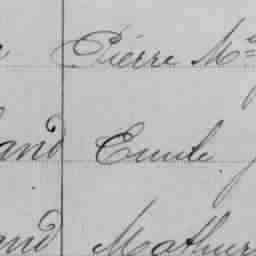 Pierre M
and Emile
and Mathur